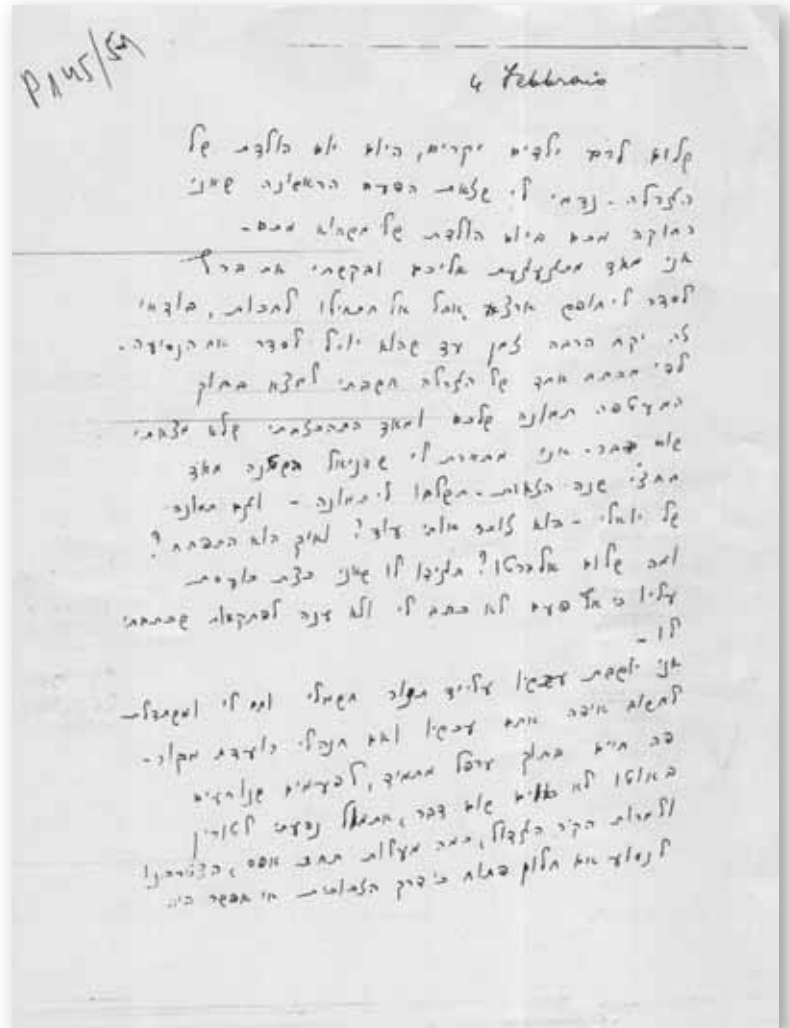 P145/59
4 Febbraio
שלום לכם ילדים יקרים, היום יום הולדת של
הגדולה - נדמה לי שזאת הפעם הראשונה שאני
רחוקה מכם ביום הולדת של מישהו מכם -
אני מאד מתגעגעת אליכם ובקשתי את
לסדר לי חופש ארצה, אבל אל תתחילו לחכות, בודאי
זה יקח הרבה זמן עד שהוא יוכל לסדר את הנסיעה -
לפי מכתב אחד של הגדולה חשבתי למצא בתוך
המעטפה תמונה שלכם ומאד התאכזבתי שלא מצאתי
שום דבר - אני מתארת לי שדניאל השתנה מאד
מחצי שנה הזאת - תשלחו לי תמונה - וגם תמונה
של יואלי - הוא זוכר אותי עוד? ואיך הוא התפתח?
ומה שלום אלברטו? תגידו לו שאני קצת כועסת
עליו כי אף פעם לא כתב לי ולא ענה לפתקאות שכתבתי
לו -
אני יושבת עכשיו על ייד תנור חשמלי וחם לי ומשתדלת
לחשוב איפה אתם עכשיו ואם חנהלי רועדת מקור -
פה חיים בתוך ערפל מתמיד, לפעמים שנוסעים
באוטו לא רואים שום דבר, אתמול נסעתי לטורין
ולמרות הקור הגדול, כמה מעלות תחת אפס, הצטרכנו
לנסוע עם חלון פתוח כי דרך הזכוכית אי אפשר היה